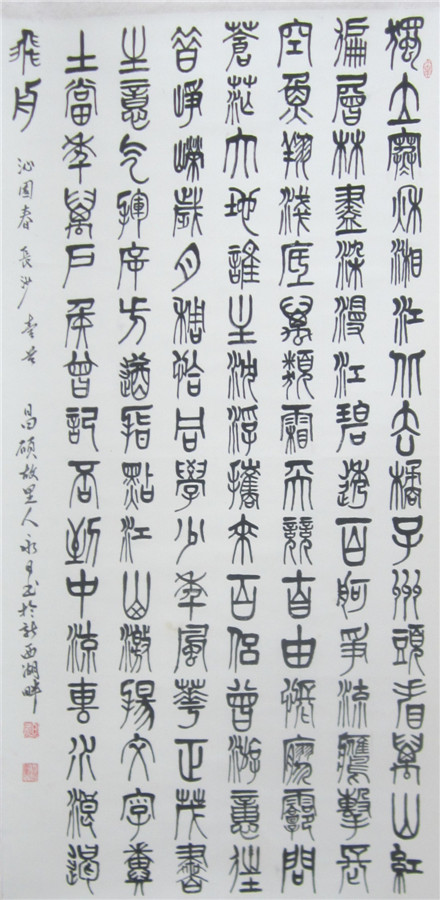 獨立寒秋湘江北去橘子洲頭看萬山紅
徧層林盡染漫江碧透百舸爭流鷹擊長
空魚翔淺底萬類霜天競自由悵寥廓問
蒼茫大地誰主沉浮攜來百侶曾游憶往
昔崢嶸歲月稠恰同學少年風華正茂書
生意气揮斥方遒指點江山激揚文字糞
土當年萬戶侯曾記否到中流擊水浪遏
飛舟
沁園春 長沙 昌碩故里人永 於 西湖畔